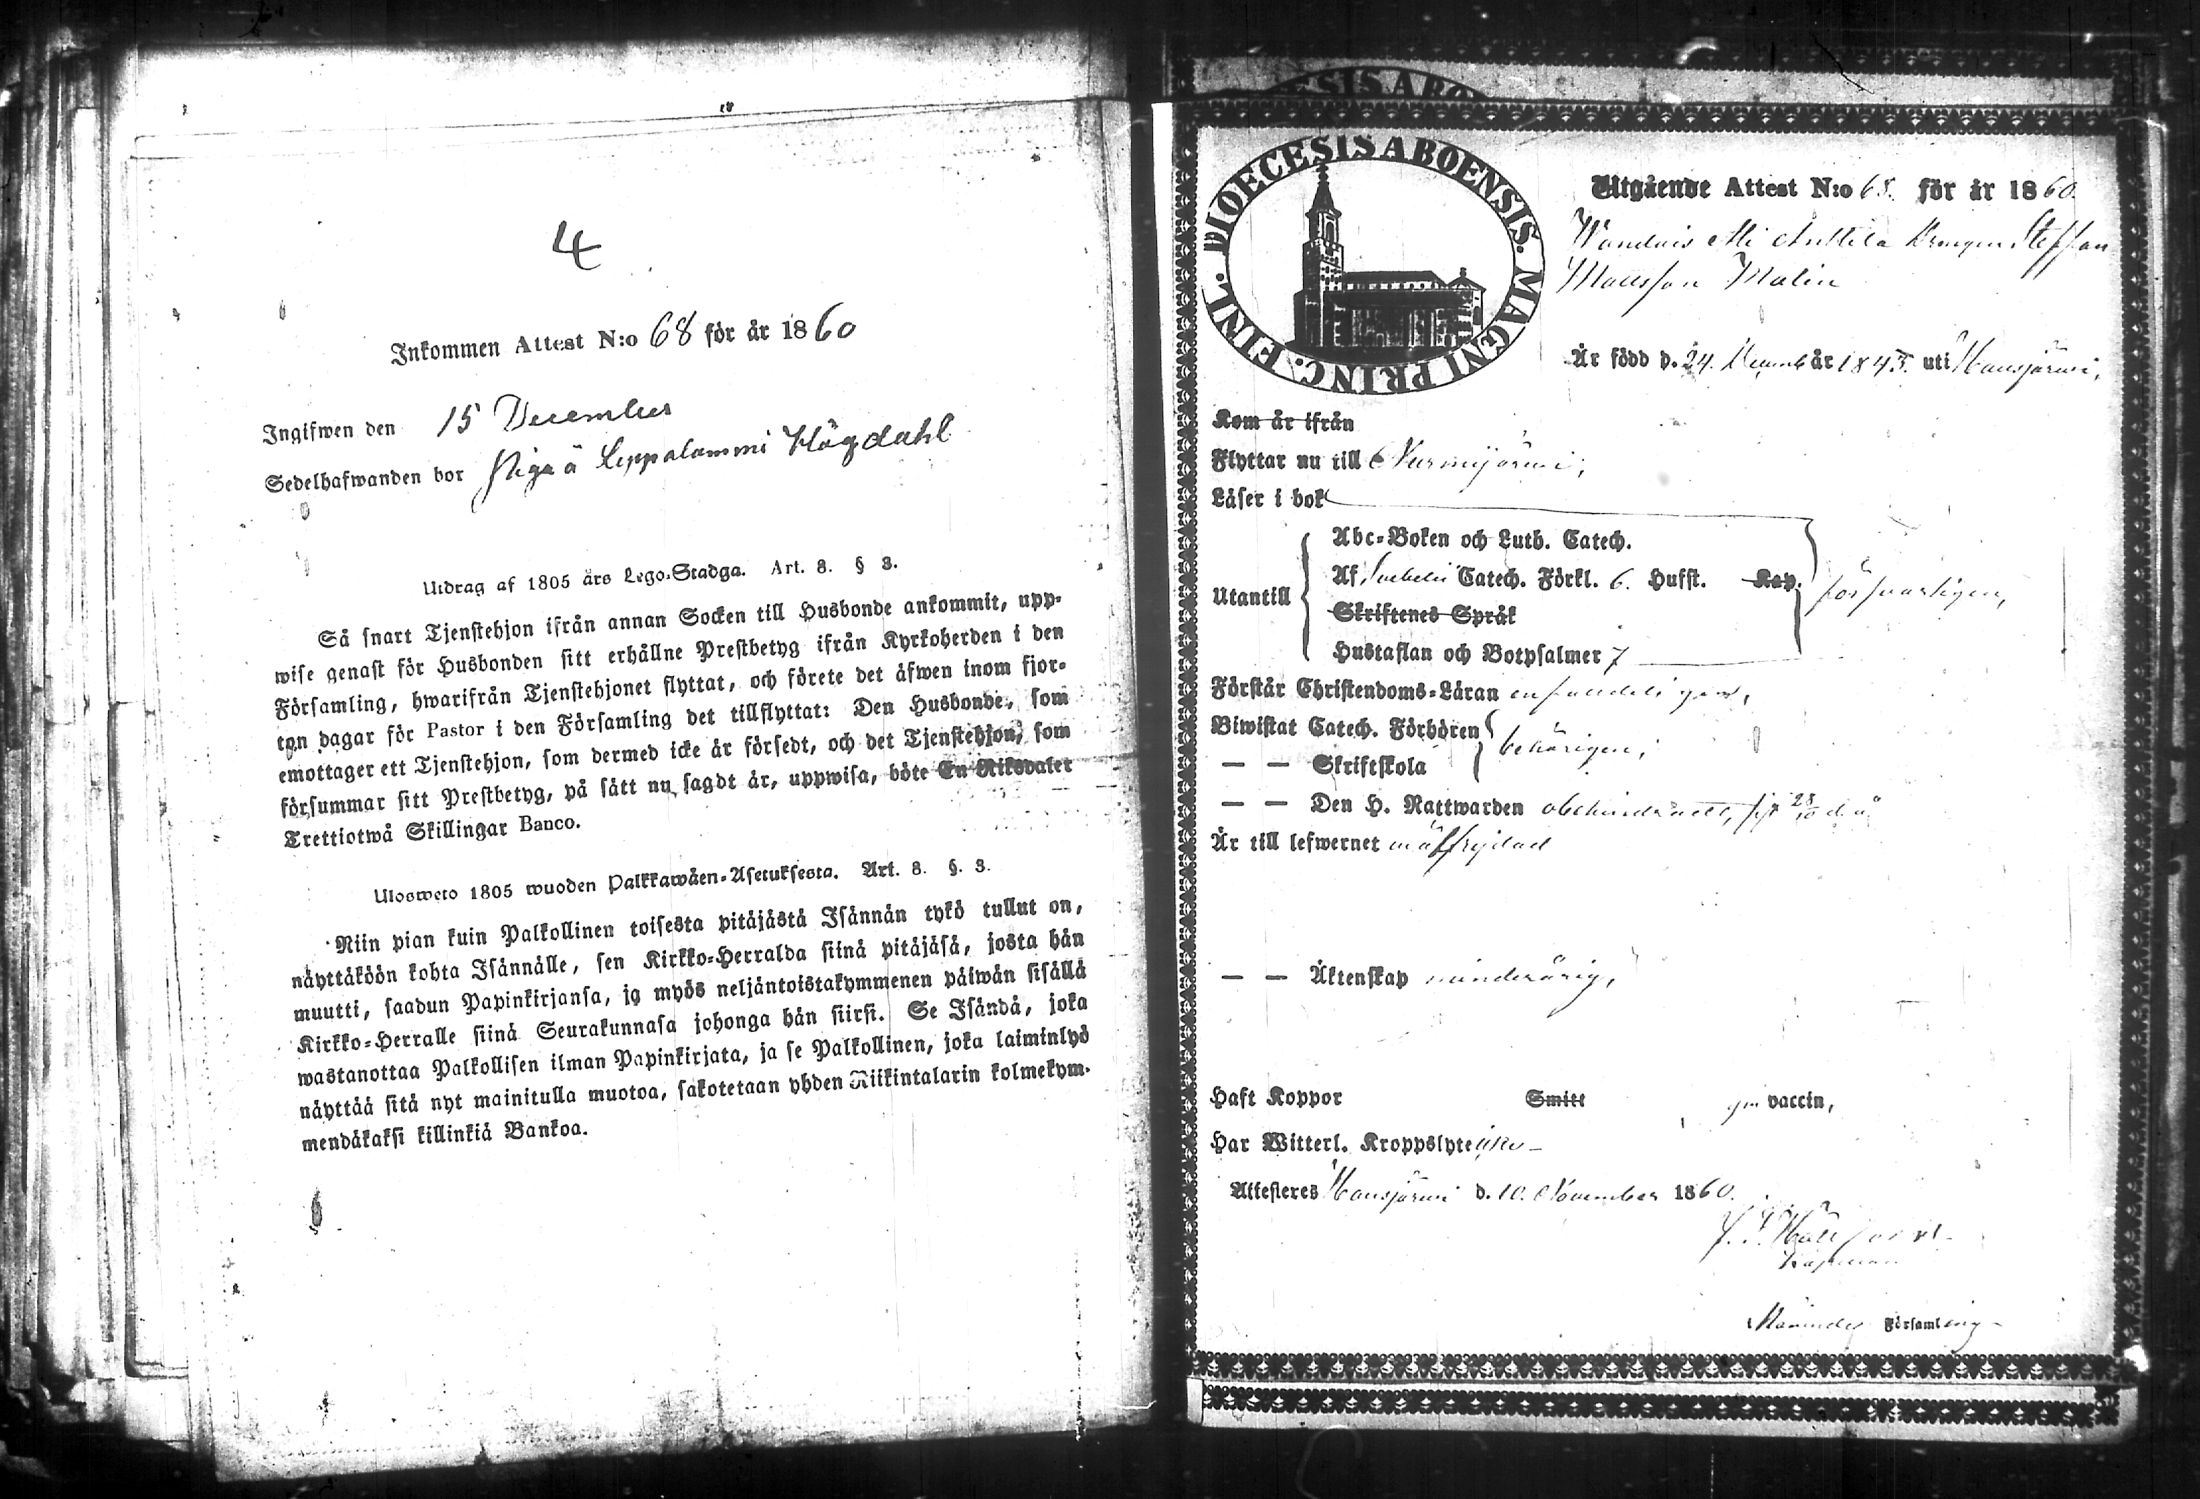 4
Inkommen Attest N:o 68 för år 1860
Ingifwen den 15 December
Sedelhafwanden bor Leppälammi Högdahl
Utdrag af 1805 års Lego-Stadga. Art. 8. § 3.
Så snart Tjenstehjon ifrån annan Socken till Husbonde ankommit, upp-
wise genast för Husbonden sitt erhållne Prestbetyg ifrån Kyrkoherden i den
Församling, hwarifrån Tjenstehjonet flyttat, och förete det äfwen inom fjor-
ton dagar för Pastor i den Församling det tillflyttat: Den Husbonde, som
emottager ett Tjenstehjon, som dermed icke är försedt, och det Tjenstehjon, som
försummar sitt Prestbetyg, på sätt nu sagdt är, uppwisa, böte En Riksdaler
Trettiotwå Skillingar Banco.
Ulosweto 1805 wuoden Palkkawäen-Asetuksesta. Art. 8. §. 3.
Niin pian kuin Palkollinen toisesta pitäjästä Isännän tykö tullut on,
näyttäköön kohta Isännälle, sen Kirkko-Herralda siinä pitäjäsä, josta hän
muutti, saadun Papinkirjansa, ja myös neljäntoistakymmenen päiwän sisällä
Kirkko-Herralle siinä Seurakunnasa johonga hän siirsi. Se Isändä, joka
wastanottaa Palkollisen ilman Papinkirjata, ja se Palkollinen, joka laiminlyö
näyttää sitä nyt mainitulla muotoa, sakotetaan yhden Riikintalarin kolmekym-
mendäkaksi killinkiä Bankoa.
DIOECESIS ABOENSIS. MAGNI PRINC. FINL.
Utgående Attest N:o 68. för år 1860.
Anttila Drängen Steffan
Mattsson Malin
Är född d. 24. Decemb år 1843. uti Hausjärwi,
Kom är ifrån
Flyttar nu till Nurmijärwi,
Läser i bok
Utantill
Abc-Boken och Luth. Catech.
Af Svebelii Catech. Förkl. 6. Hufst. Kap.
Skriftenes Språk
Hustaflan och Botpsalmer 7
försvarligen,
Förstår Christendoms-Läran enfaldeligen,
Biwistat Catech. Förhören
— — Skriftskola
behörigen,
— — Den H. Nattwarden obehindradt, sist 28/10 d. å.
Är till lefwernet oförwitlad
— — Äktenskap minderårig,
Haft Koppor Smitt gm vaccin,
Har Witterl. Kroppslyte icke —
Attesteres Hausjärwi d. 10. November 1860.
Kapellan
Församling